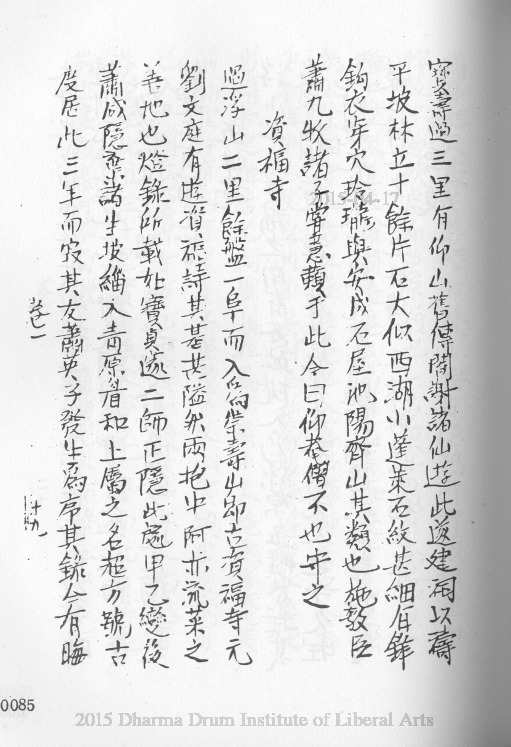 寶壽過三里有仰山舊傳閣謝諸仙遊此遂建祠以禱
平坡林立十餘片石大似西湖小蓬萊石紋甚細有鋒
鈎衣穿穴玲瓏與安成石屋池陽齊山其類也施敦臣
蕭九牧諸子嘗憩賴于此今曰仰山僧不也守之
資福寺
過浮山二里餘盤一阜而入為崇壽山即古資福寺元
劉文庭有遊資福詩其基甚隘然両抱中阿亦氣葉之
善地也燈錄所載如寶貞遂二師正隱此處甲乙變後
蕭咸隱棄諸生披緇入青原看和上屬之名超方號古
度居此三年而寂其友蕭英子發生為序其錄今有晦
卷一
十九
0085
2015-04-17
2015 Dharma Drum Institute of Liberal Arts